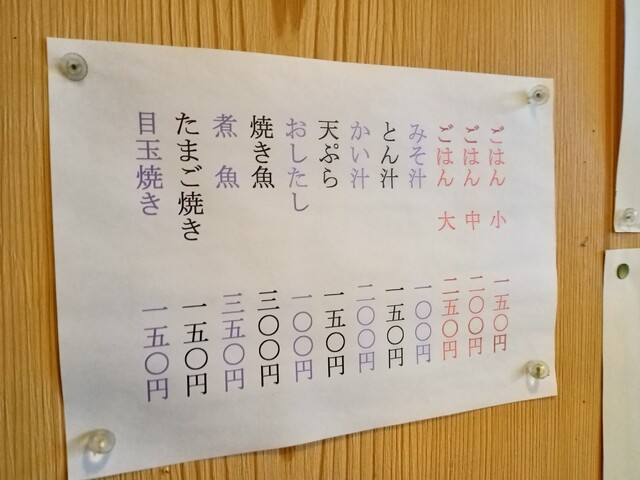 ごはん 小 一五〇円
ごはん 中 二〇〇円
ごはん 大 二五〇円
みそ汁 一〇〇円
とん汁 一五〇円
かい汁 二〇〇円
天ぷら 一五〇円
おしたし 一〇〇円
焼き魚 三〇〇円
煮 魚 三五〇円
たまご焼き 一五〇円
目玉焼き 一五〇円